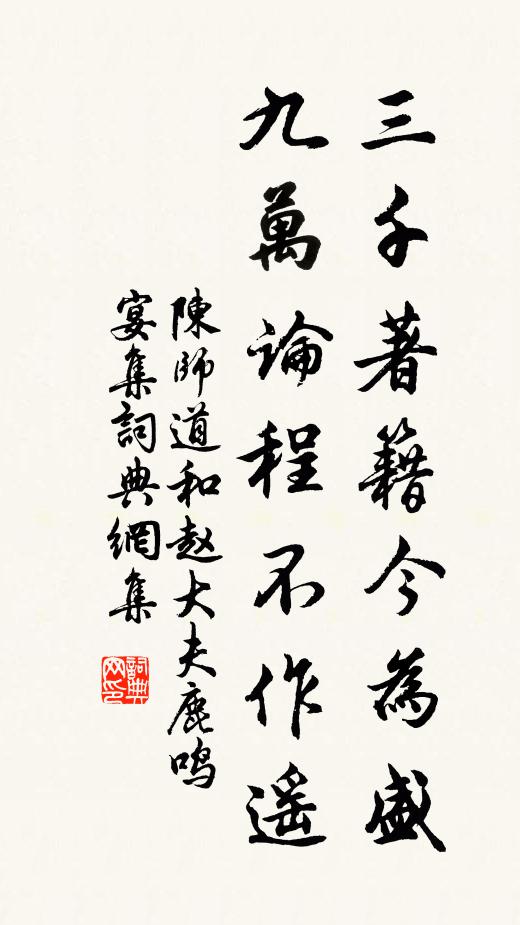 三千著籍今為盛
九萬論程不作遥
陳師道和赵大夫鹿鸣
宴集詞典網集
詞典网印